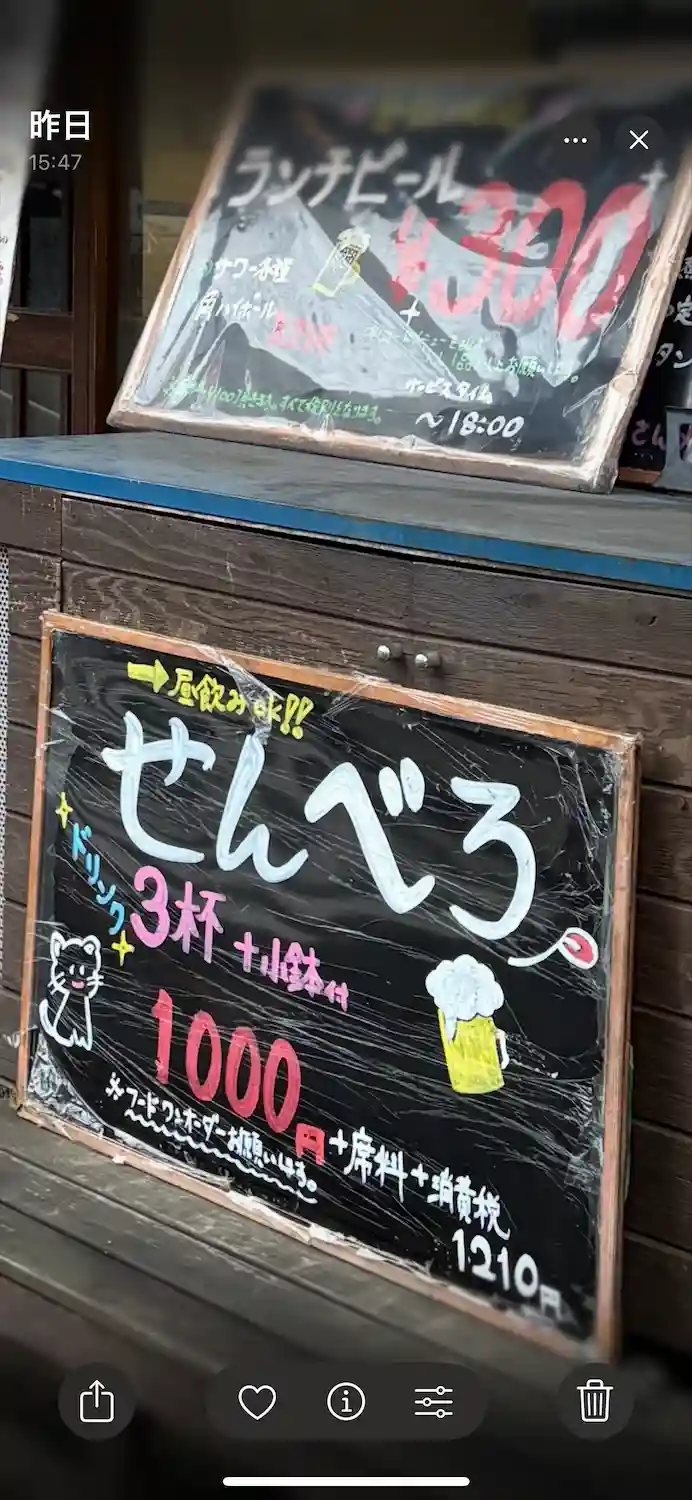 昨日
15:47
ランチビール
¥300
サワー各種
角ハイボール
+
サービスタイム
~18:00
➡昼飲みok!!
せんべろ
ドリンク
3杯+小鉢付
1000円+席料+消費税
※フードワンオーダーお願いします。
1210円